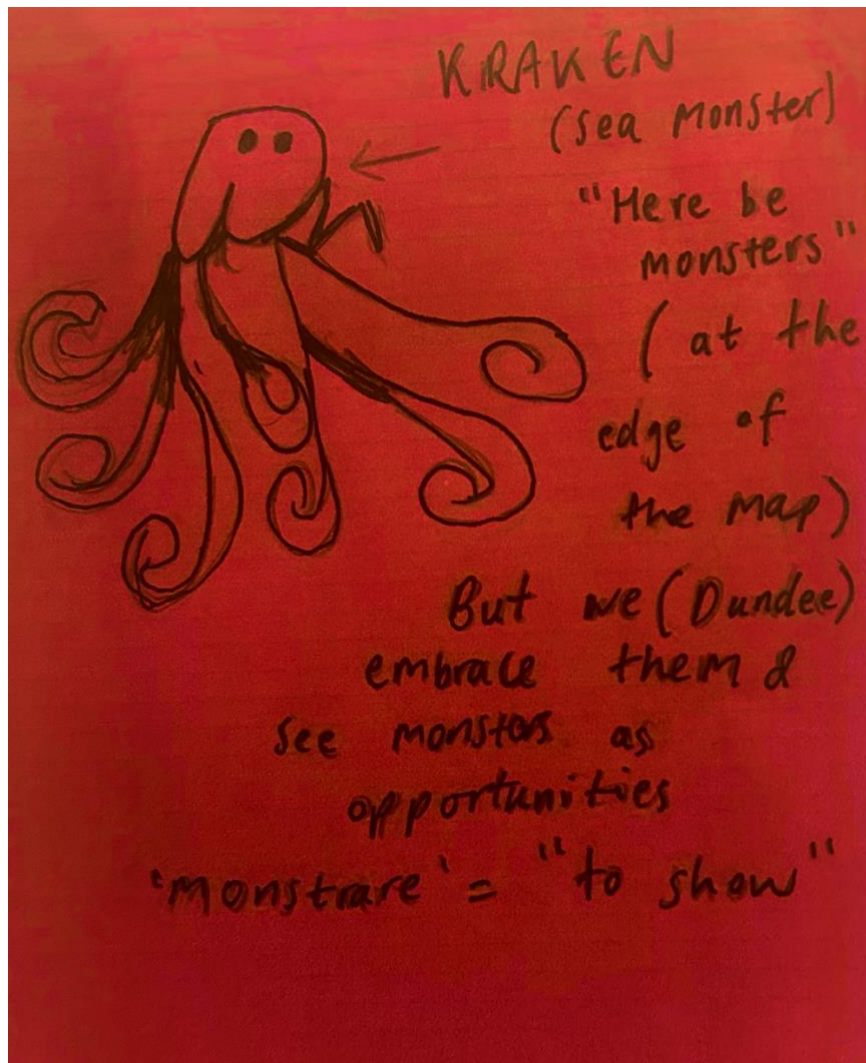 KRAKEN
(sea monster)
"Here be
monsters"
( at the
edge of
the map)
But we (Dundee)
embrace them &
see monsters as
opportunities
'monstrare' = "to show"